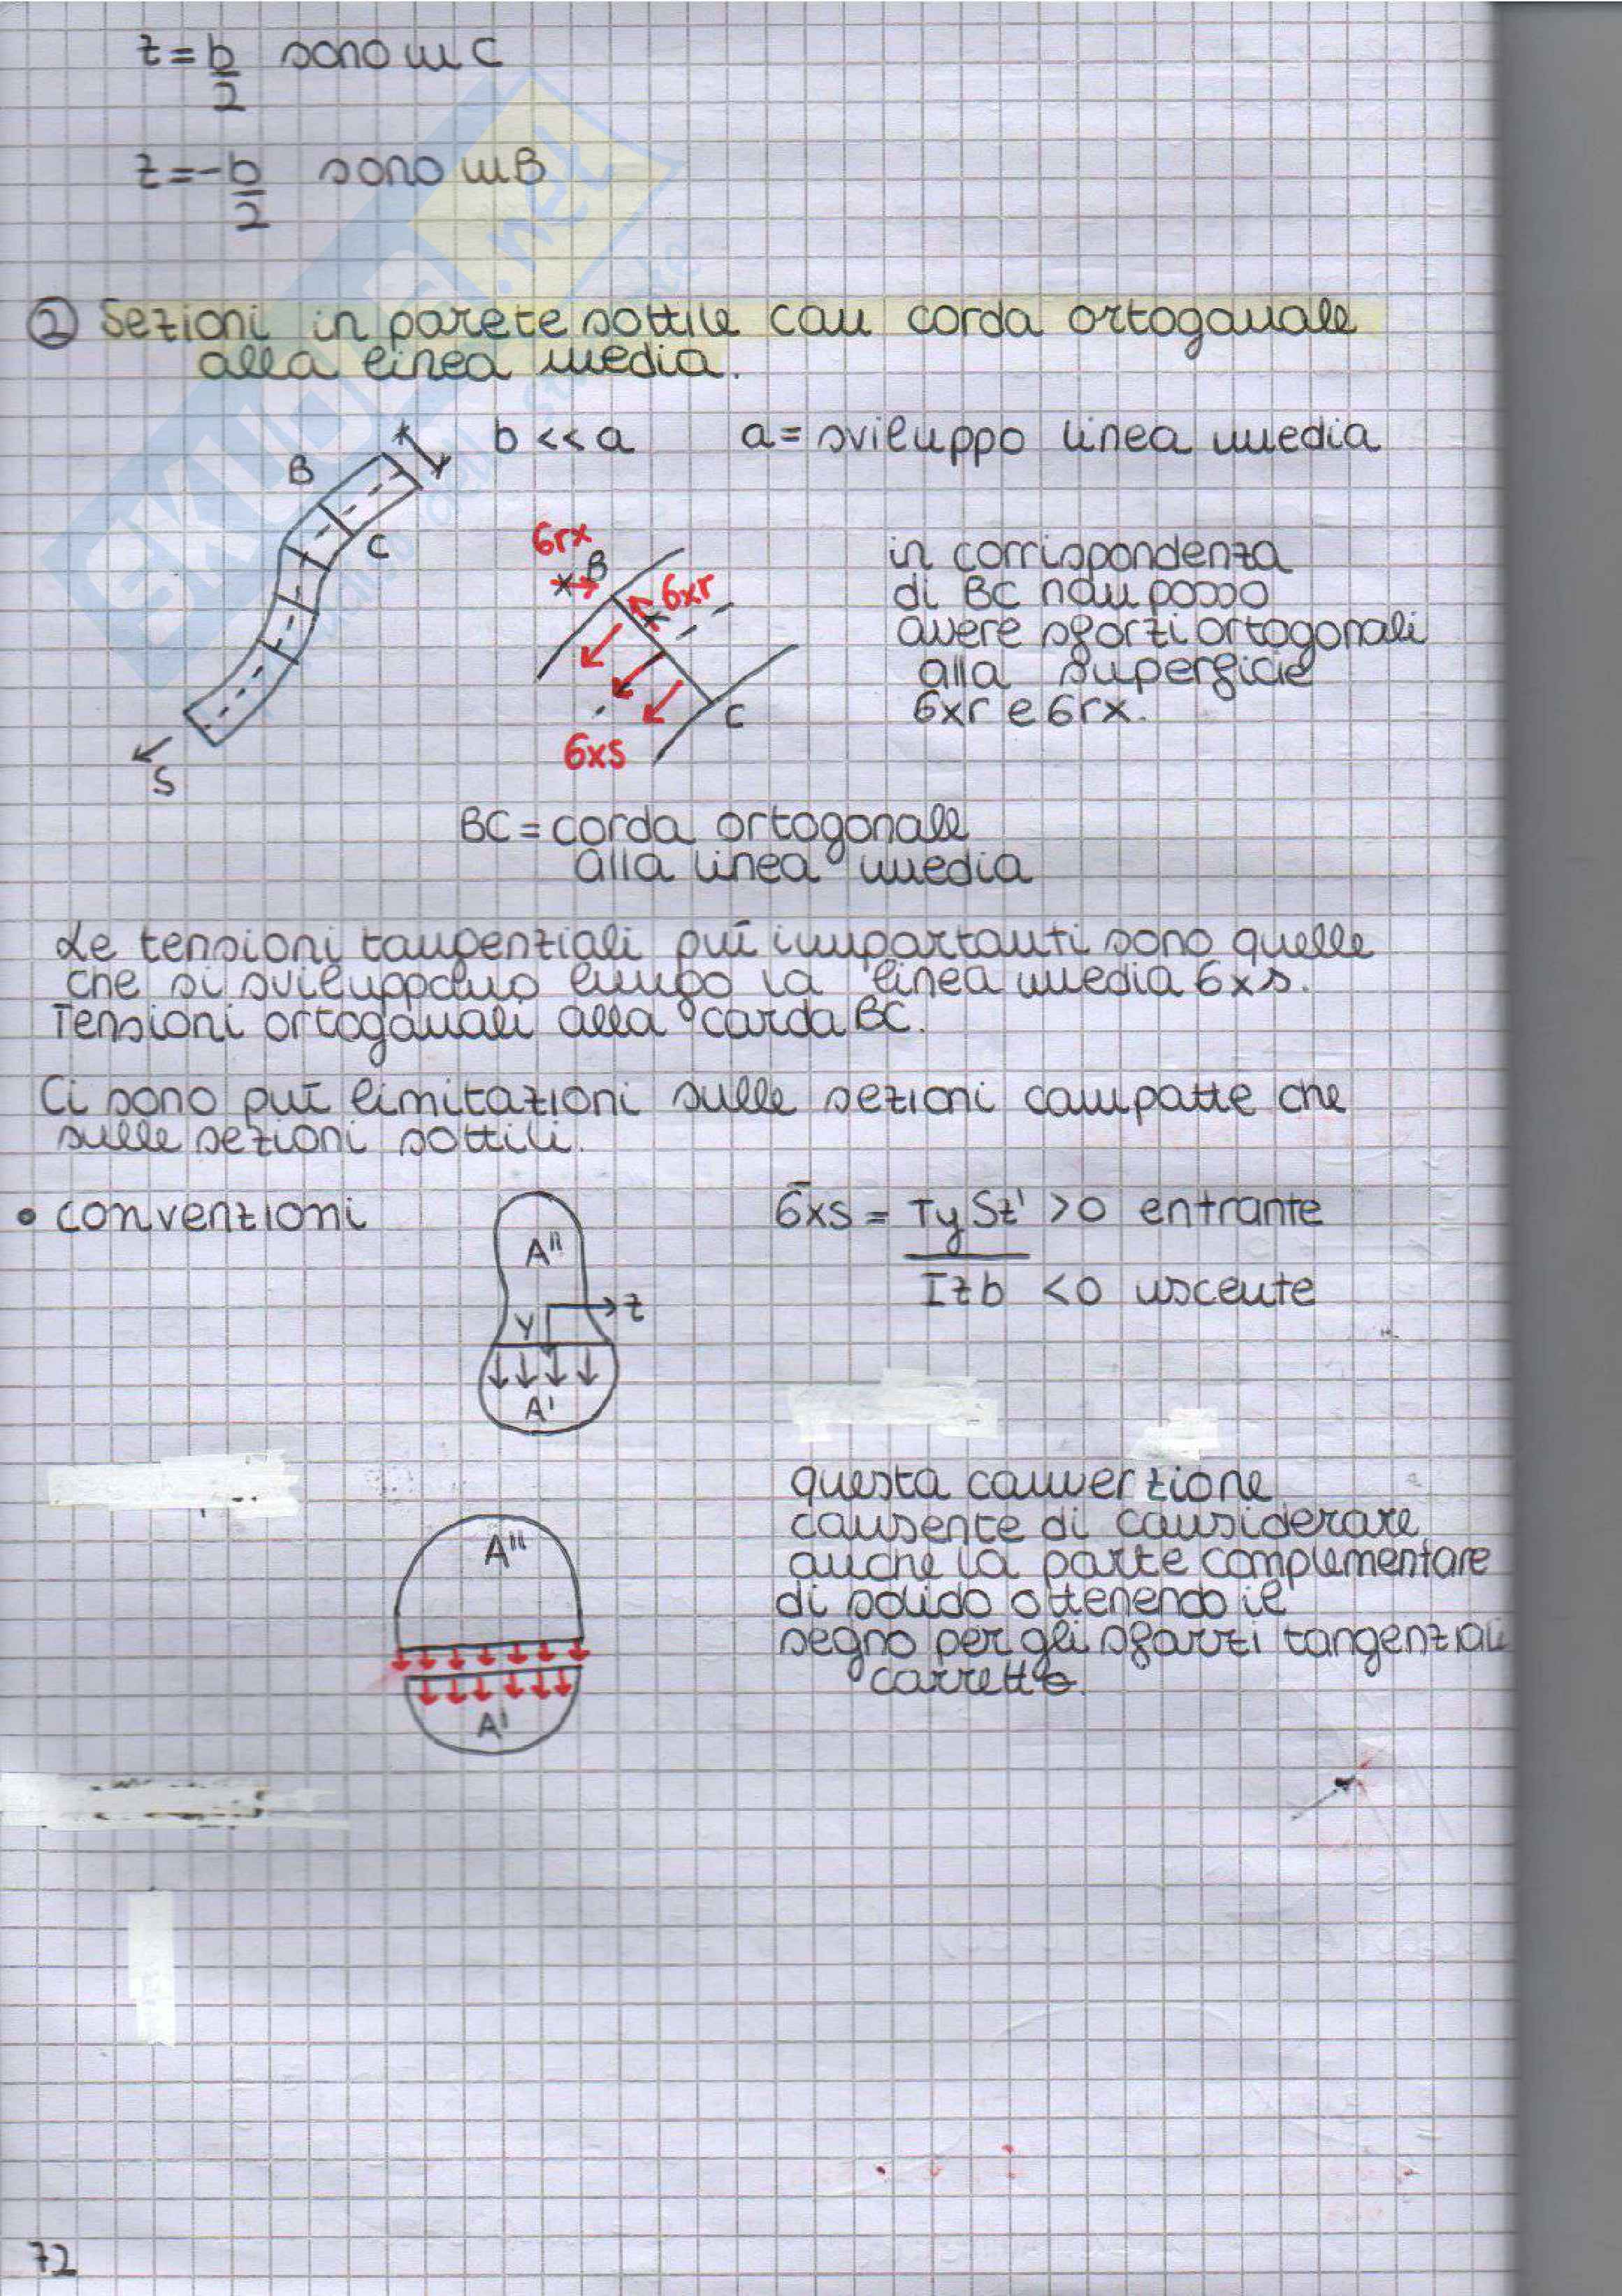 z = b/2 sono in C
z = -b/2 sono in B
② Sezioni in parete sottile con corda ortogonale
alla linea media.
b << a a = sviluppo linea media
B
C
S
σrx
B
σxr
σxs
C
in corrispondenza
di BC non posso
avere sforzi ortogonali
alla superficie
σxr e σrx.
BC = corda ortogonale
alla linea media
Le tensioni tangenziali più importanti sono quelle
che si sviluppano lungo la linea media σxs.
Tensioni ortogonali alla corda BC.
Ci sono più limitazioni sulle sezioni compatte che
sulle sezioni sottili.
• convenzioni
A''
z
Y
A'
σ̄xs = TySz' / Izb >0 entrante
<0 uscente
questa convenzione
consente di considerare
anche la parte complementare
di solido ottenendo il
segno per gli sforzi tangenziali
corretto.
A''
A'
72
SKUOLA.net